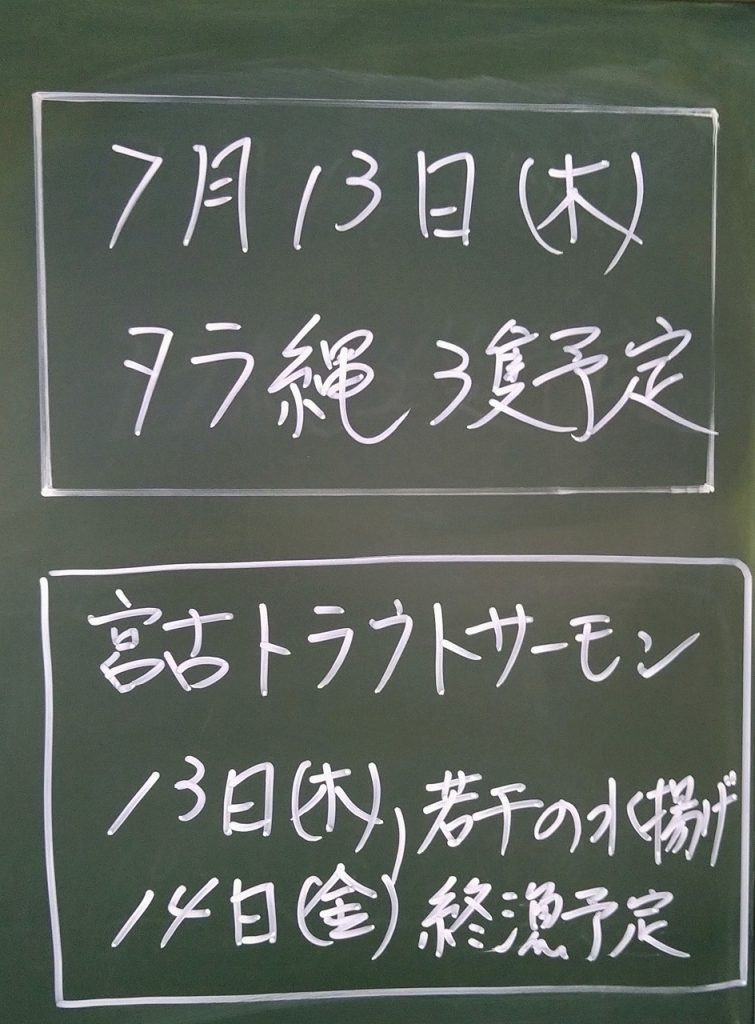 7月13日(木)
タラ縄 3隻予定
宮古トラウトサーモン
13日(木), 若干の水揚げ
14日(金) 終漁予定